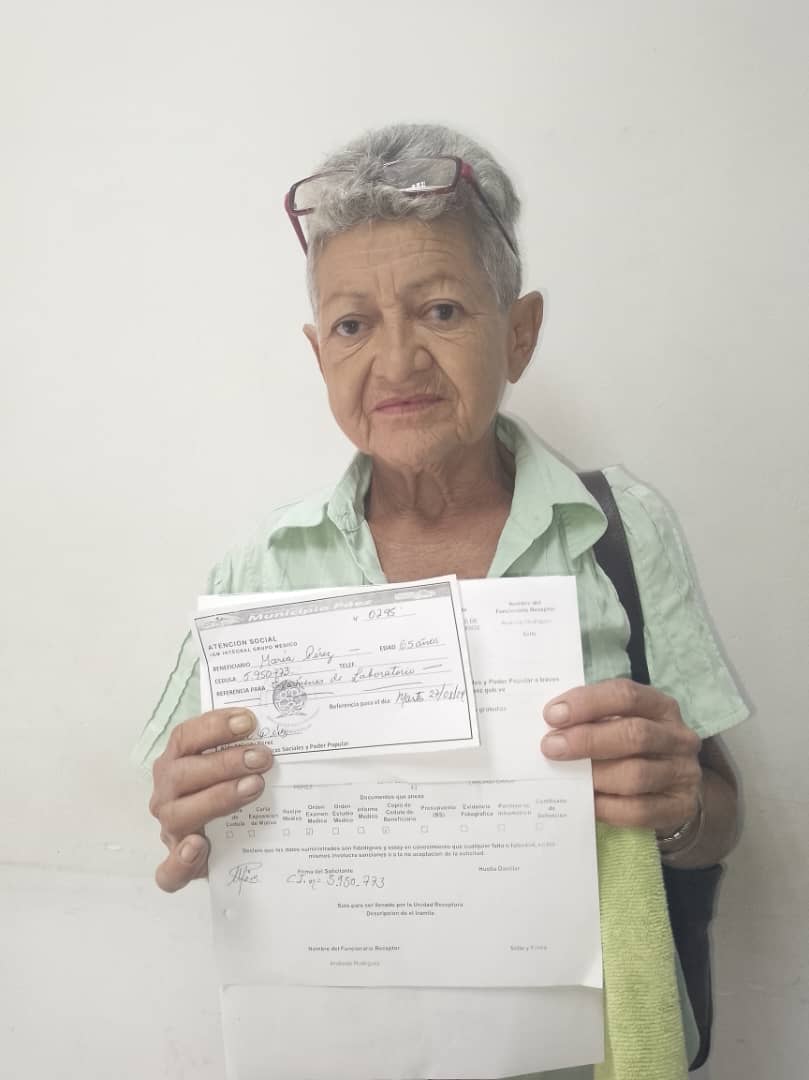 Municipio Páez
N 0295
ATENCION SOCIAL
IGN INTEGRAL GRUPO MEDICO
BENEFICIARIO María Pérez EDAD 65 años
CEDULA 5.950.773 TELEF.
REFERENCIA PARA Exámenes de Laboratorio
Referencia para el día Martes
Sociales y Poder Popular
Nombre del
Funcionario Receptor
Sello
y Poder Popular a traves
gratuitos
Documentos que anexa
Carta
Exposicion
de Motivo
Medico
Orden
Examen
Medico
Orden
Estudio
Medico
Informe
Medico
Copia de
Cedula de
Beneficiario
Presupuesto
(BS)
Evidencia
Fotografica
Certificado
de
Defunción
Declaro que los datos suministrados son fidedignos y estoy en conocimiento que cualquier falta o falsedad, en los
mismos involucra sanciones o a la no aceptacion de la solicitud.
Firma del Solicitante
Huella Dactilar
5.950.773
Solo para ser llenado por la Unidad Receptora
Descripcion del tramite.
Nombre del Funcionario Receptor
Sello y Firma
Rodriguez